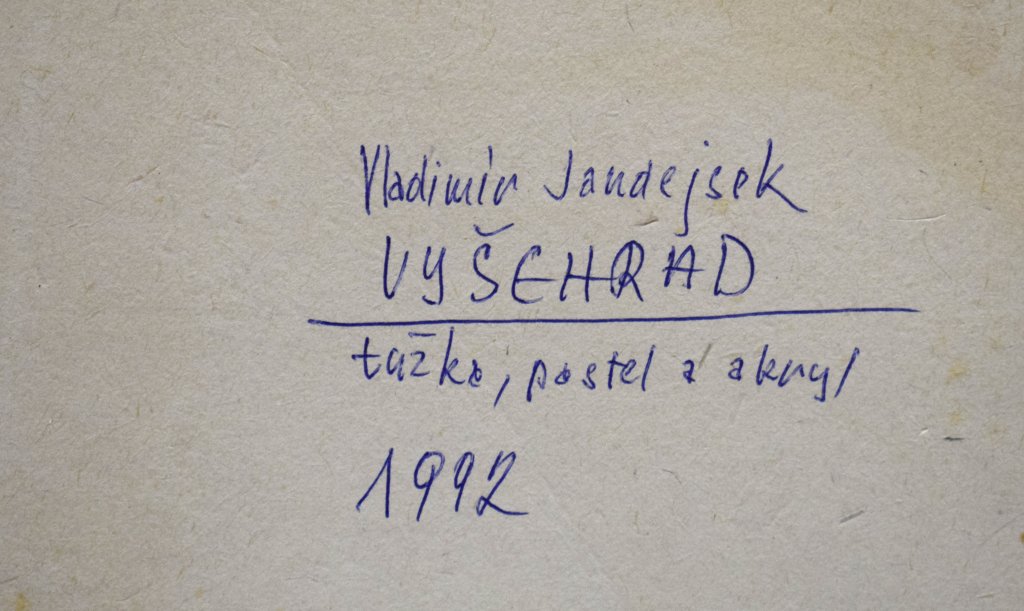 Vladimír Jandejsek
VYŠEHRAD
tužka, pastel a akryl
1992